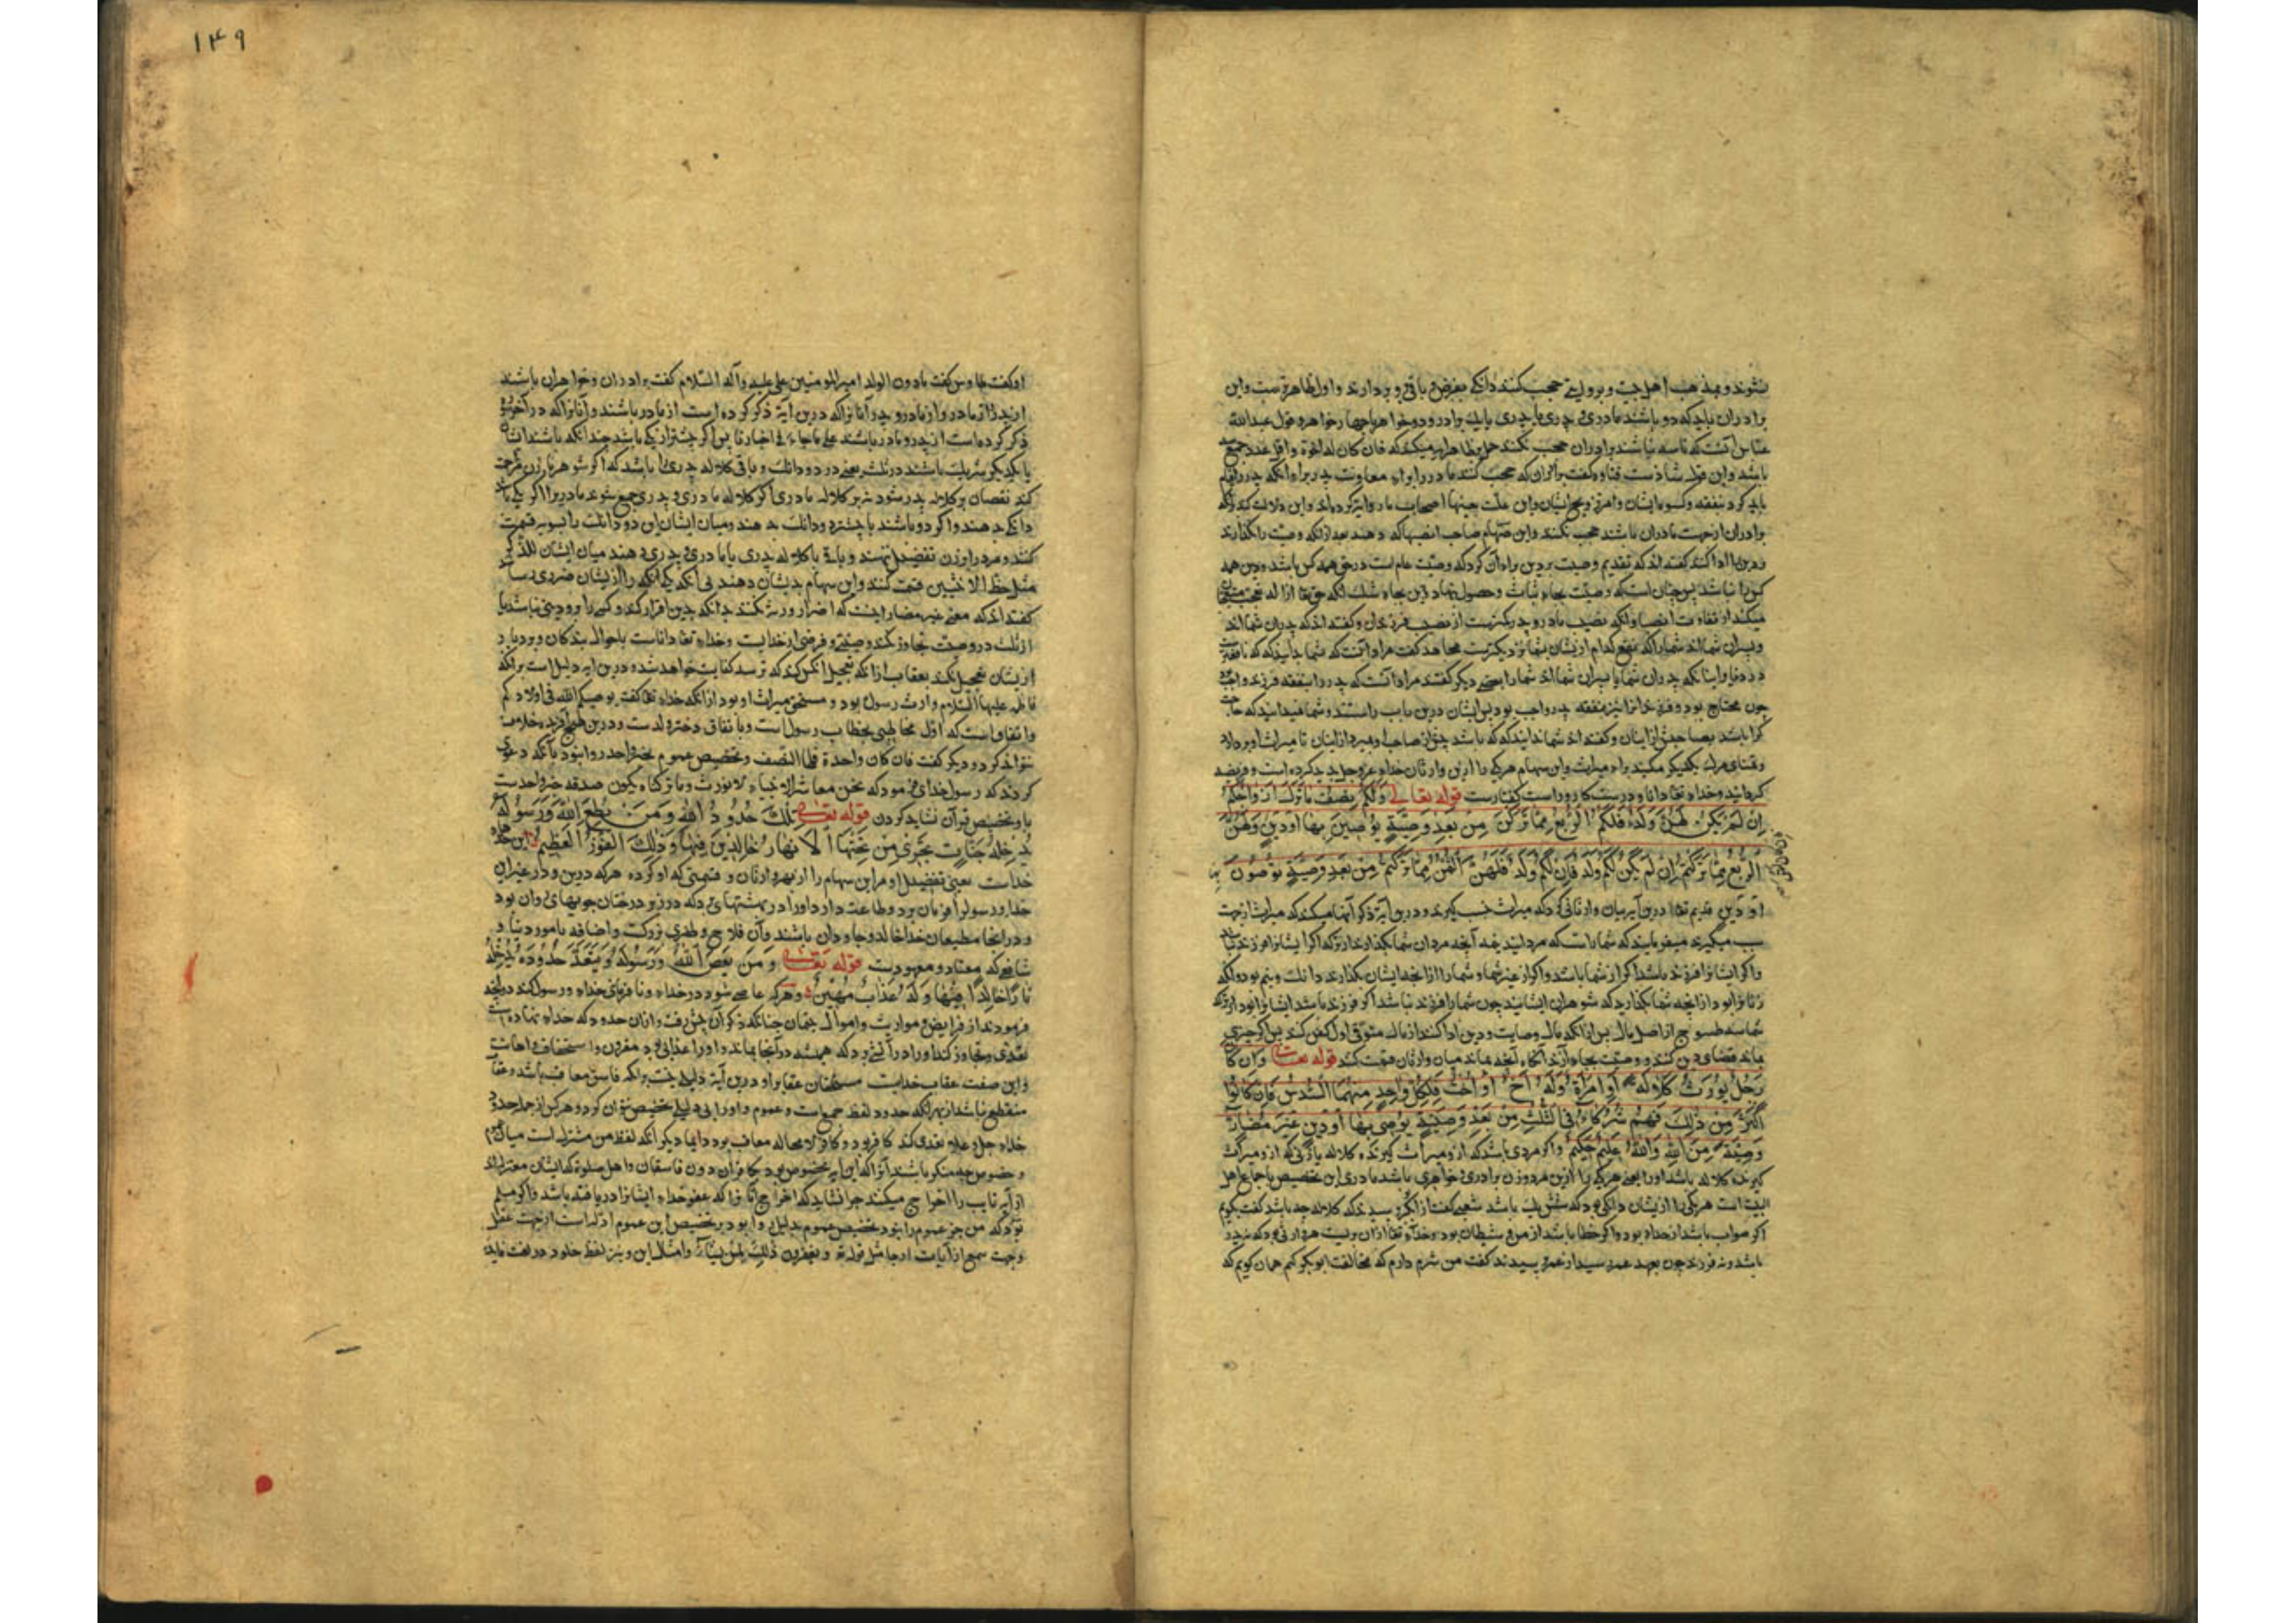 نشوند و بمذهب اهل بیت و بروایتی حجب کنند دانکی بفرض و باقی برد بردارند و اول ظاهرترست و این
برادران باید که دو باشند مادری و پدری یا پدری یا یک برادر و دو خواهر یا چهار خواهر و قول عبدالله
عباس آنست که تا سه نباشند برادران حجب نکنند حمل بظاهر آیه میکند که فان کان له اخوة و اقل عدد جمع سه
باشد و این قول شاذست قتاده گفت برادران که حجب کنند مادر را برای معاونت پدر برای آنکه پدر را قیام
باید کرد بنفقه و کسوة ایشان
برادران از جهت مادران باشند حجب نکنند و این سهام صاحب انصبها که دهند بعد از آنکه وصیت را بگذارند
و دین را ادا کنند گفته اند که تقدیم وصیت بر دین برای آن کرد که وصیت عام است در حق همه کس باشد و دین همه
کس را نباشد
میکند از تفاوت انصبا و آنکه نصیب مادر و پدر کمترست از نصیب فرزندان و گفته اند که پدران شما اند
و پسران شما اند شما را که بنفع کدام از ایشان بشما نزدیکترست مجاهد گفت مراد آنست که شما چه دانید که که نافعتر
در دنیا و اینانکه پدران شما یا پسران شما اند شما را بعضی دیگر گفتند مراد آنست که پدر را نفقه فرزند واجب بود
چون محتاج بود و فرزند را نیز نفقه پدر واجب بود پس ایشان درین باب راستند و شما نمیدانید که حاجت
کرا باشد بصاحبش از اینان و گفته اند شما ندانید که که باشد پیش از صاحب او میرد از اینان تا میراث او بردارد
و تمنای مرگ یکدیگر مکنید برای میراث و این سهام هر یکی را ازین وارثان خدای عز و جل پدید کرده است و فریضه
گردانید و خدای تعا دانا و درست کار و راست گفتارست قوله تعالی وَلَكُمْ نِصْفُ مَا تَرَكَ اَزْوَاجُكُمْ
اِنْ لَمْ يَكُنْ لَهُنَّ وَلَدٌ فَلَكُمُ الرُّبُعُ مِمَّا تَرَكْنَ مِنْ بَعْدِ وَصِيَّةٍ يُوصِينَ بِهَا اَوْ دَيْنٍ وَلَهُنَّ
الرُّبُعُ مِمَّا تَرَكْتُمْ اِنْ لَمْ يَكُنْ لَكُمْ وَلَدٌ فَاِنْ كَانَ لَكُمْ وَلَدٌ فَلَهُنَّ الثُّمُنُ مِمَّا تَرَكْتُمْ مِنْ بَعْدِ وَصِيَّةٍ تُوصُونَ بِهَا
اَوْ دَيْنٍ قدیم تعا درین آیه بیان وارثانی کرد که میراث بنسب گیرند و درین آیه ذکر آنها میکند که میراث از جهت
سبب میگیرند میفرماید که شما راست که مردانید نیمه آنچه زنان شما بگذارند از ترکه اگر ایشانرا فرزند نباشد
و اگر ایشانرا فرزند باشد اگر از شما باشد و اگر از غیر شما
زنانرا بود از آنچه شما بگذارید که شوهران ایشانید چون شما را فرزند نباشد اگر فرزند باشد ایشانرا بود از ترکه
شما سه طسوج از اصل مال پس از آنکه مال وصایت و دین ادا کنند از مال متوفی اول کفن کند پس اگر چیزی
بماند قضای دین کنند و وصیت بجای آرند آنگاه آنچه بماند میان وارثان قسمت کنند قوله تعالی وَاِنْ كَانَ
رَجُلٌ يُورَثُ كَلَالَةً اَوِ امْرَأَةٌ وَلَهُ اَخٌ اَوْ اُخْتٌ فَلِكُلِّ وَاحِدٍ مِنْهُمَا السُّدُسُ فَاِنْ كَانُوا
اَكْثَرَ مِنْ ذٰلِكَ فَهُمْ شُرَكَاءُ فِي الثُّلُثِ مِنْ بَعْدِ وَصِيَّةٍ يُوصَى بِهَا اَوْ دَيْنٍ غَيْرَ مُضَارٍّ
وَصِيَّةً مِنَ اللّٰهِ وَاللّٰهُ عَلِيمٌ حَكِيمٌ و اگر مردی باشد که ازو میراث گیرنده کلاله یا زنی که ازو میراث
گیرنده کلاله باشد او را یعنی هر یکی را ازین مرد و زن برادری و خواهری باشد مادری این تخصیص باجماع اهل
البیت است هر یکی را ازیشان دانکی بود که شش یک باشد شعبی گفت از ابوبکر پرسیدند که کلاله چه باشد گفت بگویم
اگر صواب باشد از خدای بود و اگر خطا باشد از من و شیطان بود و خدای تعا ازان بریست هر وارثی بود که نه پدر
باشد و نه فرزند چون بعهد عمر رسید از عمر پرسیدند گفت من شرم دارم که مخالفت ابوبکر کنم همان گویم که
۱۴۹
او گفت طاوس گفت مادون الولد امیر المومنین علی علیه و آله السلام گفت برادران و خواهران باشند
از پدر و از مادر و از مادر و پدر و آنانرا که درین آیة ذکر کرده است از مادر باشند و آنانرا که در آخر سوره
ذکر کرده است از پدر و مادر باشند علی ما جاء فی اخبارنا پس اگر بیشتر از یکی باشد چندانکه باشند ایشان
با یکدیگر شریک باشند در ثلث یعنی در دو دانگ و باقی کلاله پدری را باشد که اگر شوهر یا زن مزاحمت
کند نقصان بر کلاله پدر شود نه بر کلاله مادری اگر کلاله مادری و پدری جمع شوند مادری را اگر یکی باشد
دانکی دهند و اگر دو باشند یا بیشتر دو دانگ دهند و میان ایشان این دو دانگ را بسویه قسمت
کنند و مرد را بر زن تفضیل ننهند و باقی با کلاله پدری یا مادری و پدری دهند میان ایشان للذکر
مثل حظ الانثیین قسمت کنند و این سهام بدیشان دهند بی آنکه یکی را ازیشان ضرری رسانند
گفته اند که معنی غیر مضار اینست که اضرار ورثه نکند بدانکه بدین اقرار کند و کسی را برو دینی نباشد یا
از ثلث در وصیت تجاوز کند وصیتی و فرضی از خدایست و خدای تعا داناست باحوال بندگان و بردبار
ازیشان تعجیل نکند بعقاب از آنکه تعجیل آنکس کند که ترسد که فایت خواهد شد و درین ایه دلیل است بر آنکه
فاطمه علیها السلام وارث رسول بود و مستحق میراث او بود از آنکه خدای تعا گفت یوصیکم الله فی اولادکم
و اتفاق است که اول مخاطبی بخطاب رسول است و باتفاق دختر ولدست و درین هیچ آفریده خلاف
نتواند کرد و دیگر گفت فان کان واحدة فلها النصف و تخصیص عموم بخبر واحد روا نبود بآنکه دعوی
کردند که رسول خدای فرمود که نحن معاشر الانبیاء لا نورث و ما ترکناه یکون صدقه خبر واحدست
با او تخصیص قرآن نشاید کردن قوله تعالی تِلْكَ حُدُودُ اللّٰهِ وَمَنْ يُطِعِ اللّٰهَ وَرَسُولَهُ
يُدْخِلْهُ جَنَّاتٍ تَجْرِي مِنْ تَحْتِهَا الْاَنْهَارُ خَالِدِينَ فِيهَا وَذٰلِكَ الْفَوْزُ الْعَظِيمُ این حدهای
خداست یعنی تفضیل او مر این سهام را از بهر وارثان و قسمتی که او کرده هر که درین و در غیر این
خدا و رسول را فرمان برد و طاعت دارد او را در بهشتهائی برد که در زیر درختان جویهای روان بود
و در آنجا مطیعان خدا خالد و جاودان باشند و آن فلاح و ظفری بزرگست و اضافه بامور دنیا و
منافعی که معتاد و معهودست قوله تعالی وَمَنْ يَعْصِ اللّٰهَ وَرَسُولَهُ وَيَتَعَدَّ حُدُودَهُ يُدْخِلْهُ
نَارًا خَالِدًا فِيهَا وَلَهُ عَذَابٌ مُهِينٌ و هر که عاصی شود در خدای و نافرمانی خدای و رسول کند در آنچه
فرمودند از فرایض و مواریث و اموال یتیمان چنانکه ذکر آن پیش رفت و ازان حدود که خدای نهاده است
تعدی و تجاوز کند او را در آتشی برد که همیشه در آنجا بماند و او را عذابی بود مقرون باستخفاف و اهانت
و این صفت عقاب خدایست مستحقان عقاب را و درین آیة دلیلی نیست بر آنکه فاسق معاقب باشد و عقاب
منقطع نباشد از بهر آنکه حدود لفظ جمع است و عموم و او را بی دلیلی تخصیص نتوان کرد و هر کس از جمله حدود
خدای جل و علا تعدی کند کافر بود و کافر لا محاله معاقب بود دایما دیگر آنکه لفظ من مشترک است میان عموم
و خصوص چه منکر باشند آنرا که این ایه مخصوص بود بکافران دون فاسقان و اهل صلوة که ایشان معتزله اند
از آیه تایب را اخراج میکنند چرا نشاید که اخراج آنانرا که عفو خدای ایشانرا دریافته باشد و اگر مسلم
بود که من جز عموم را نبود تخصیص عموم بدلیل روا بود بر تخصیص این عموم ادله است از جهت عقل
و جهت سمع از آیات ارجا مثل قوله تع و یغفر ما دون ذٰلك لمن یشاء و امثال این و نیز لفظ خلود در لغت